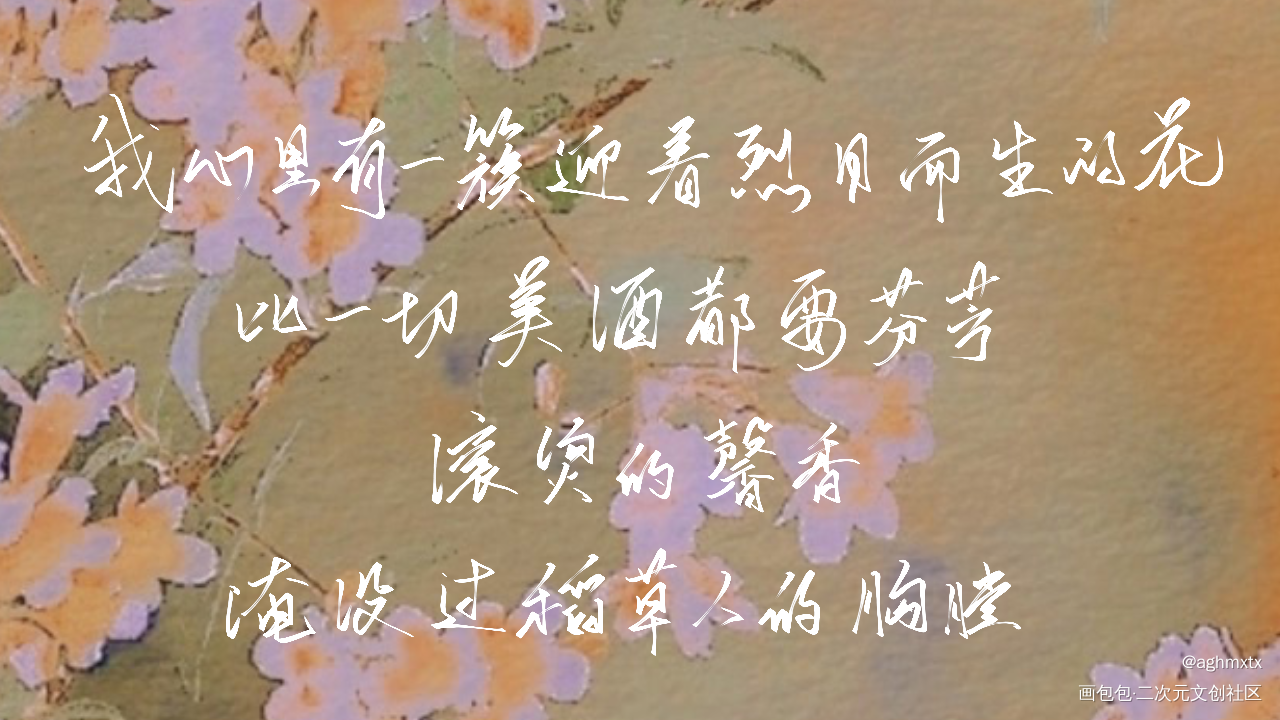 我们里有一簇迎着烈日而生的花
比一切美酒都要芬芳
滚烫的馨香
淹没过稻草人的胸膛
@aghmxtx
画包包·二次元文创社区